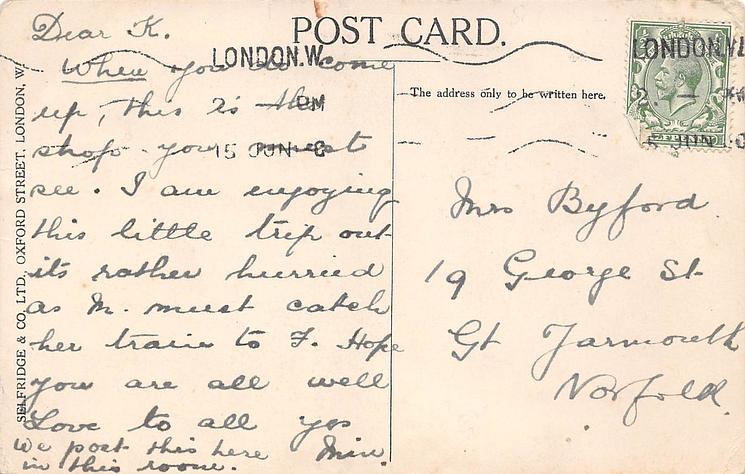 POST CARD.
SELFRIDGE & CO., LTD., OXFORD STREET, LONDON, W.
Dear K.
When you do come
up, this is the
shop you must
see. I am enjoying
this little trip out
its rather hurried
as M. must catch
her train to F. Hope
you are all well
Love to all yrs
Min.
We post this here
in this room.
LONDON.W.
PM
15 JUN
The address only to be written here.
Mrs Byford
19 George St
Gt Yarmouth
Norfolk.
LONDON.W
JUN